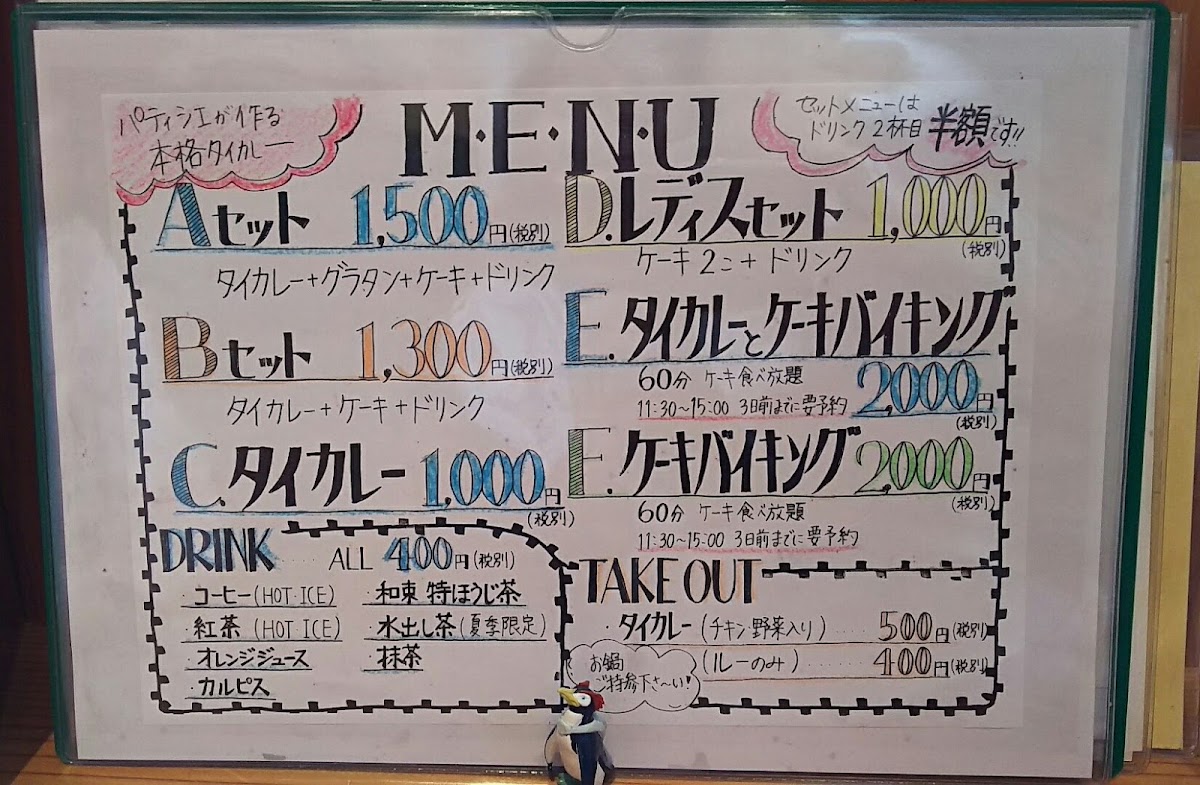 パティシエが作る
本格タイカレー
M・E・N・U
セットメニューは
ドリンク2杯目 半額です!!
Aセット 1,500円(税別)
タイカレー+グラタン+ケーキ+ドリンク
Bセット 1,300円(税別)
タイカレー+ケーキ+ドリンク
C.タイカレー 1,000円
(税別)
D.レディスセット 1,000円
(税別)
ケーキ2こ+ドリンク
E.タイカレーとケーキバイキング
60分 ケーキ食べ放題
11:30~15:00 3日前までに要予約 2,000円
(税別)
F.ケーキバイキング 2,000円
(税別)
60分 ケーキ食べ放題
11:30~15:00 3日前までに要予約
DRINK ALL 400円(税別)
・コーヒー(HOT ICE)
・紅茶(HOT ICE)
・オレンジジュース
・カルピス
・和束 特ほうじ茶
・水出し茶(夏季限定)
・抹茶
TAKE OUT
・タイカレー(チキン野菜入り)……500円(税別)
(ルーのみ)……400円(税別)
お鍋
ご持参下さ~い!